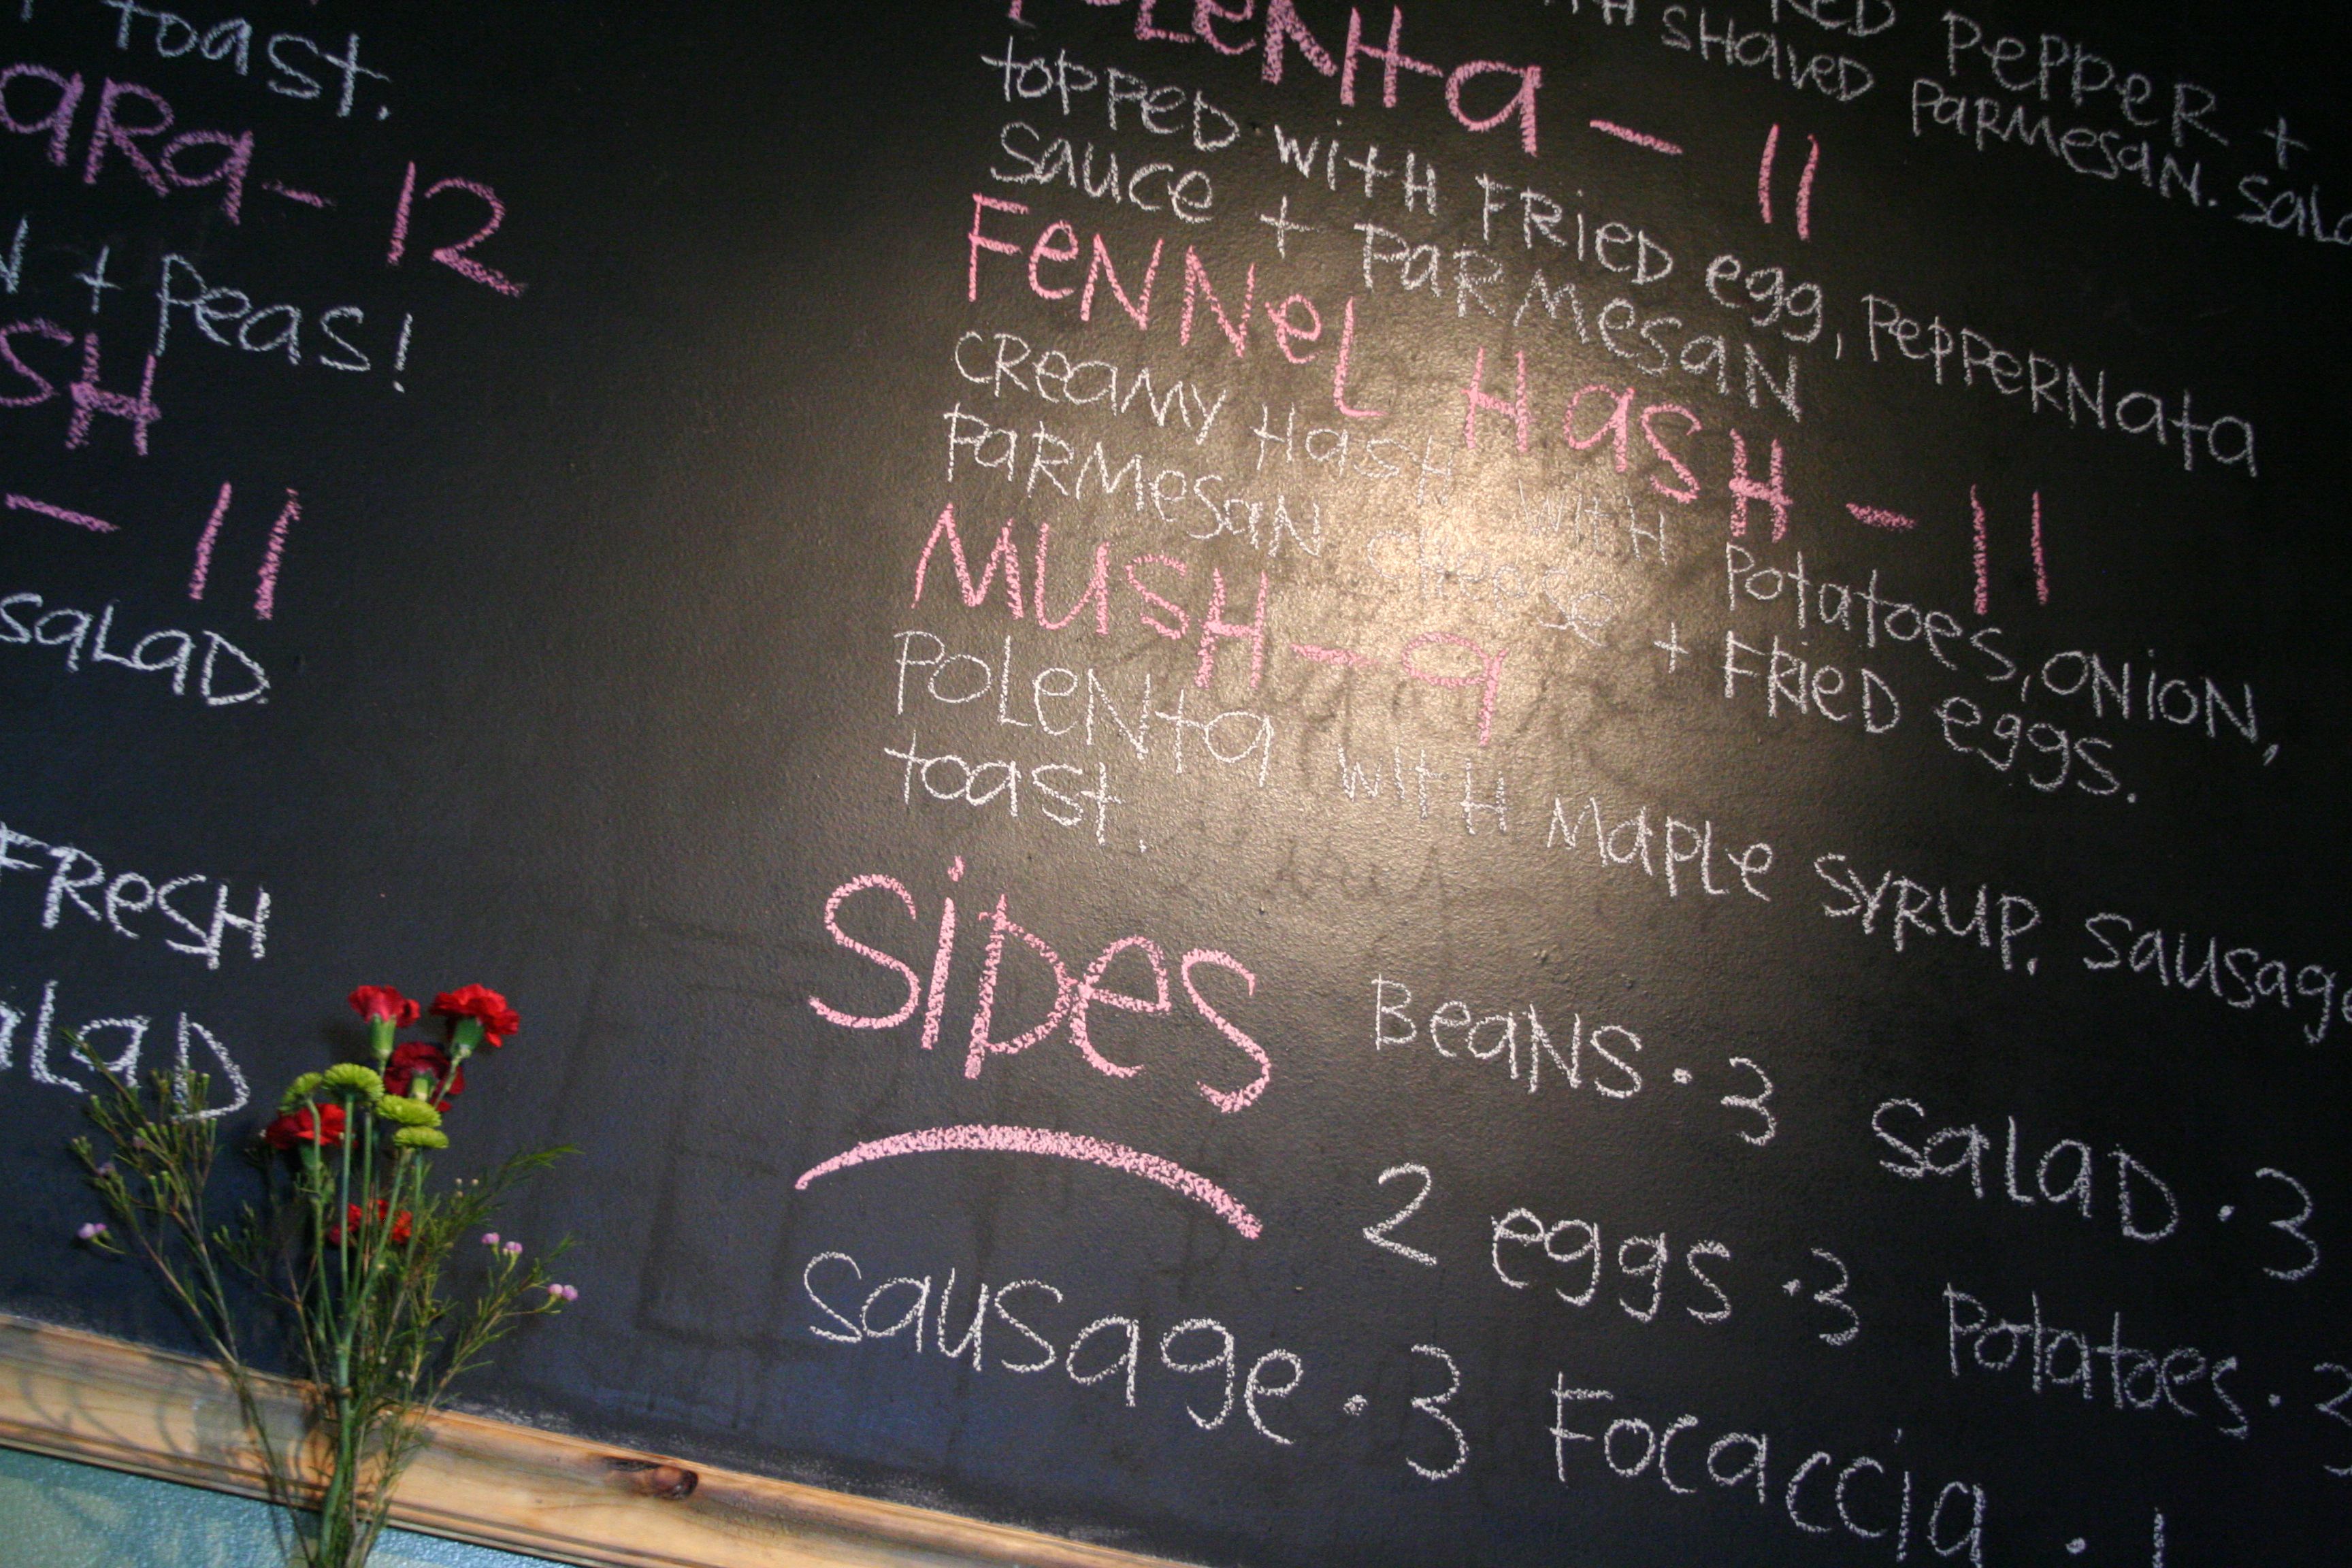 toast.
- 12
+ Peas!
- 11
SALAD
FRESH
Pepper +
SHAVED PARMESAN.
- 11
topped with FRied egg, Peppernata
sauce + Parmesan
Fennel Hash - 11
Creamy Hash with Potatoes, onion,
Parmesan cheese + FRied eggs.
Mush - 9
Polenta with Maple Syrup. Sausage
toast.
Sides
Beans · 3 Salad · 3
2 eggs · 3 Potatoes ·
Sausage · 3 Focaccia ·